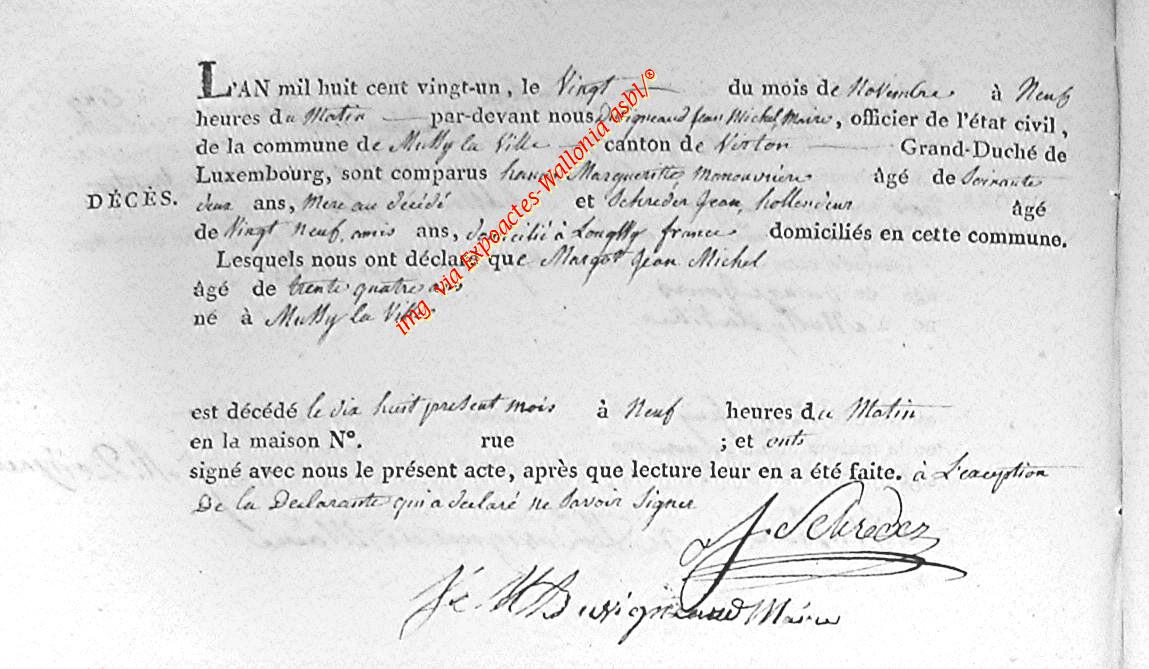 L'AN mil huit cent vingt-un, le Vingt du mois de Novembre à Neuf
heures du Matin par-devant nous Jean Michel Maire, officier de l'état civil,
de la commune de Mussy la Ville canton de Virton Grand-Duché de
Luxembourg, sont comparus Margueritte Manouvrière âgé de Soixante
DÉCÈS.
deux ans, Mere au décédé et Schreder Jean, âgé
de Vingt Neuf, amis ans, domicilié à france domiciliés en cette commune.
Lesquels nous ont déclaré que Margot Jean Michel
âgé de trente quatre ans
né à Mussy la Ville.
est décédé le dix huit present mois à Neuf heures du Matin
en la maison N°. rue ; et onts
signé avec nous le présent acte, après que lecture leur en a été faite. à L'exception
De la Declarante qui a declaré ne Savoir Signer
J. Schreder
Maire
img via Expoactes-Wallonia asbl/©